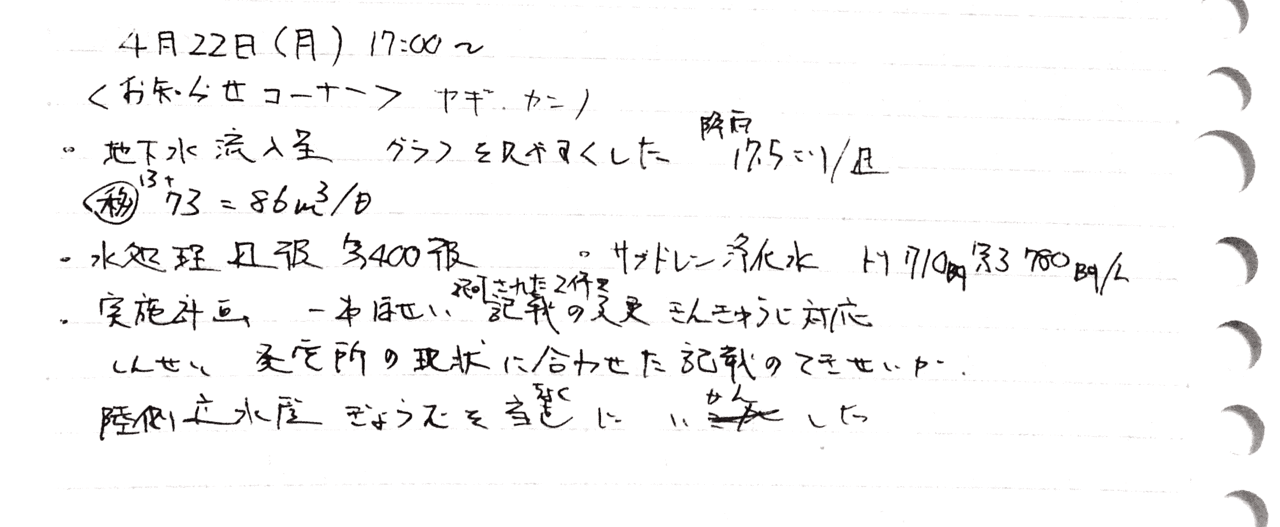 4月22日(月) 17:00〜
<お知らせコーナー> ヤギ、カニ)
。地下水流入量 グラフを見やすくした 降雨 17.5ミリ/週
移 13+73=86m³/日
・水処理 週報 第400報 。サブドレン浄化水 トリ 710Bq 第3 780Bq/L
・実施計画 一部ほせい 認可された2件を 記載の変更 きんきゅうじ対応
しんせい 発電所の現状に合わせた記載のてきせいか
陸側 水 ぎょう を当 にいかんした